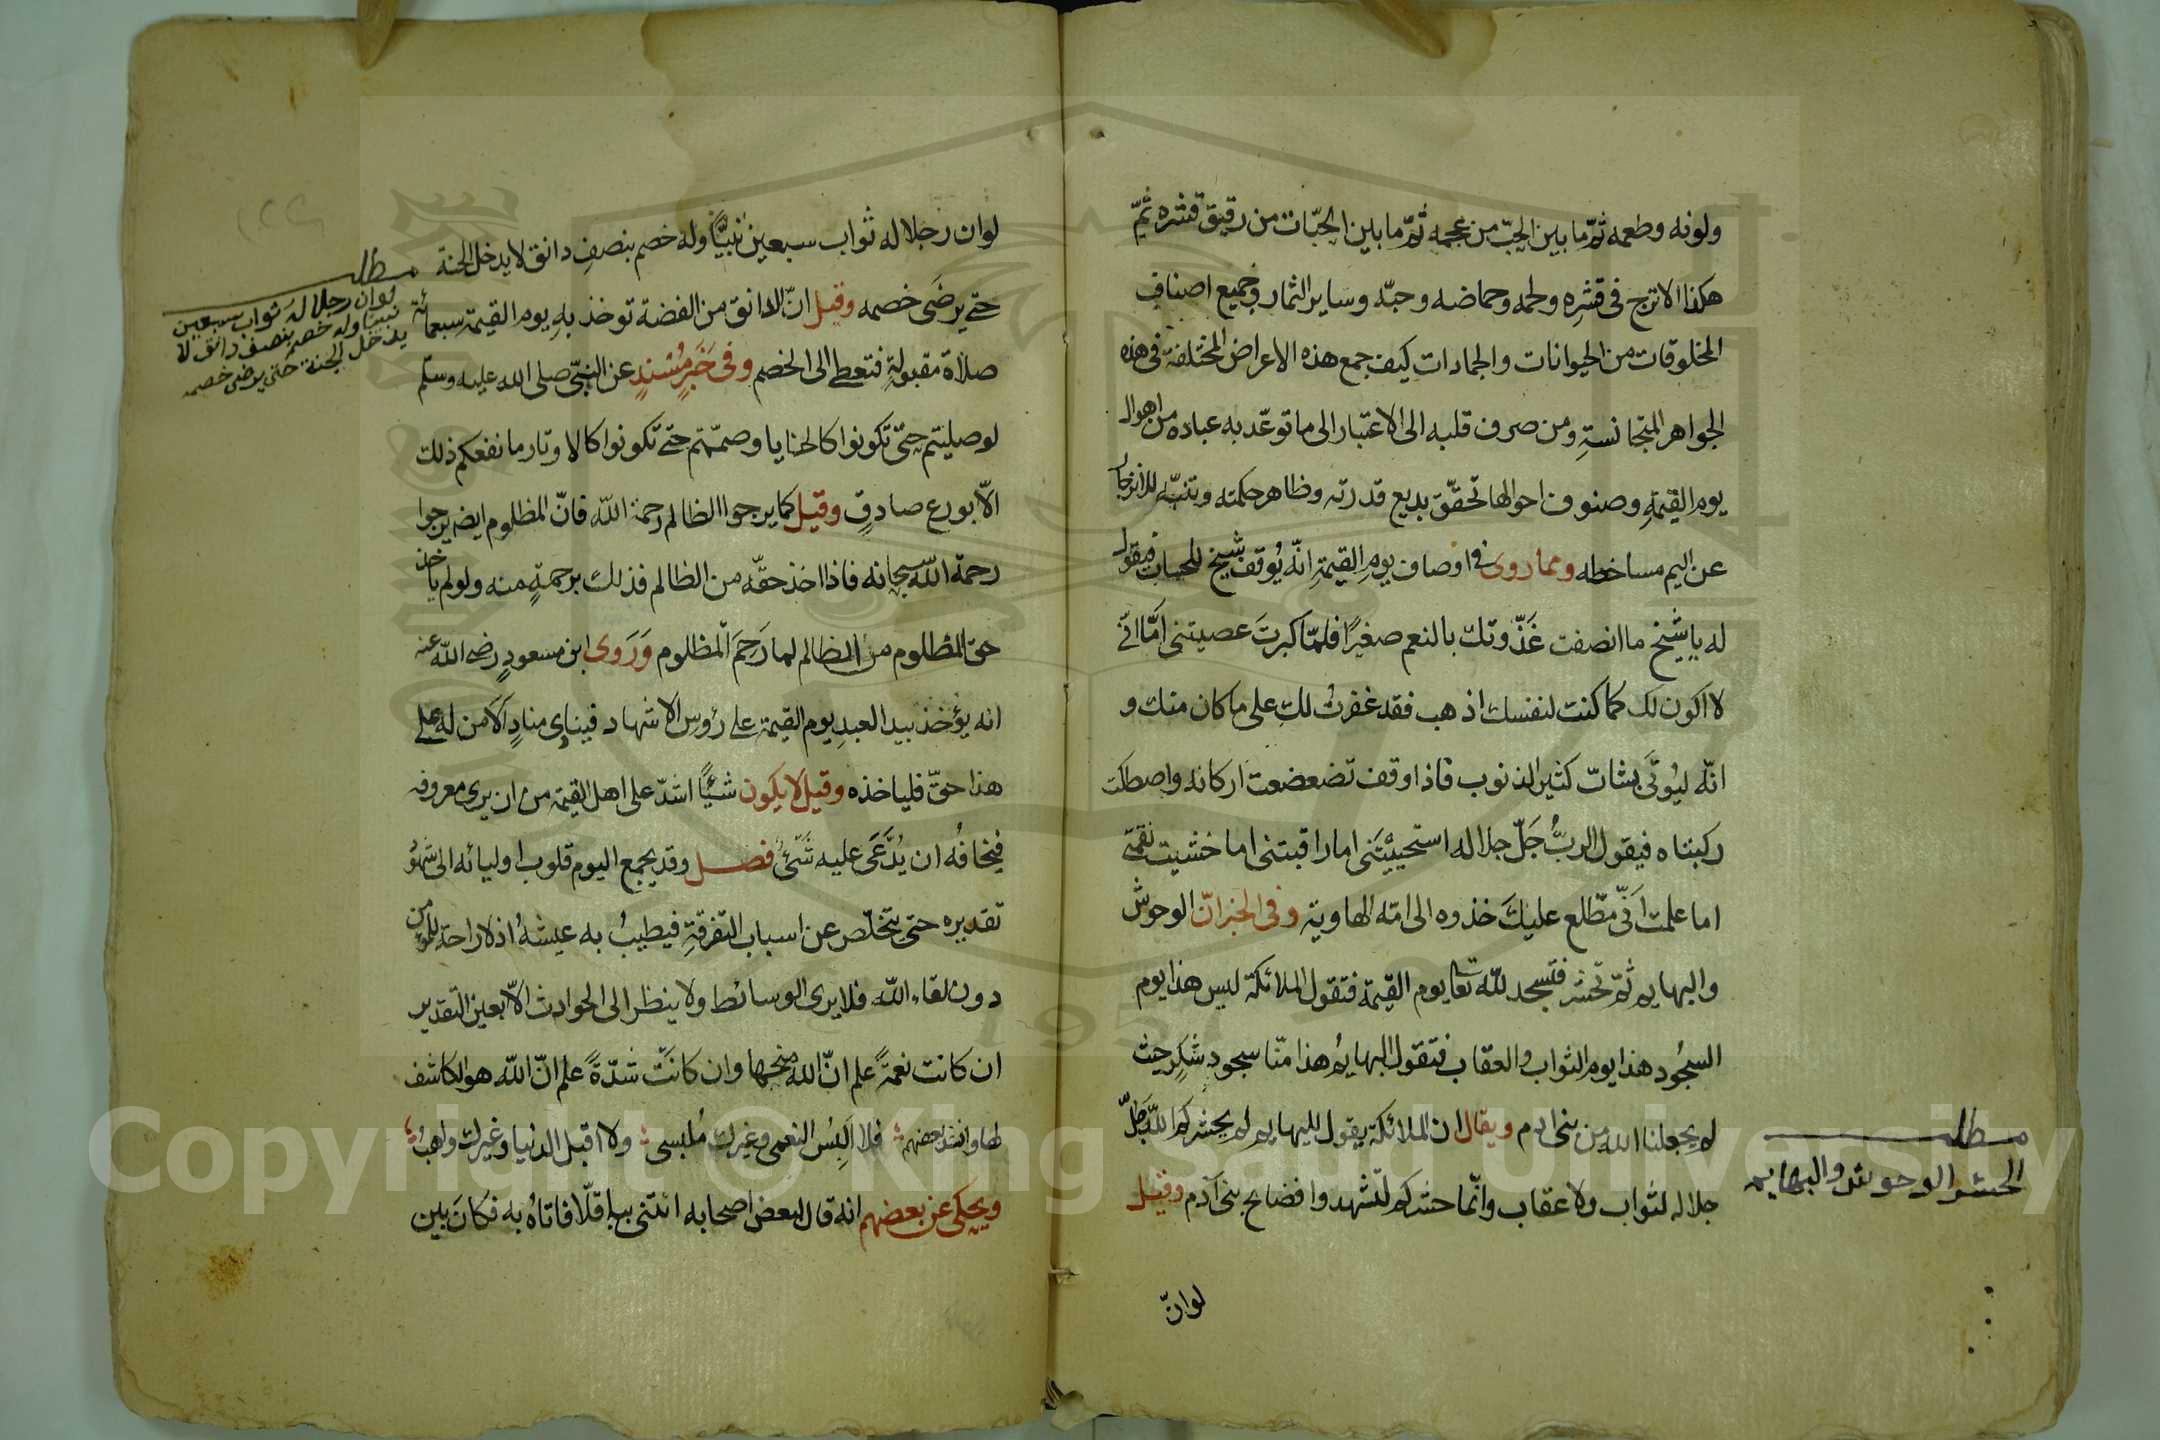 ولونه وطعمه ثمّ ما بين الحبّ من عجمه ثمّ ما بين الحبّات من رقيق قشره ثمّ
هكذا الاترج في قشره ولحمه وحماضه وحبّه وساير الثمار وجميع اصناف
المخلوقات من الحيوانات والجمادات كيف جمع هذه الاعراض المختلفة في هذه
الجواهر المتجانسةِ ومن صرف قلبه الى الاعتبار الى ما توعّد به عباده من اهوال
يوم القيمةِ وصنوف احوالها تحقّق بديع قدرته وظاهر حكمته وتنبّه للانزجار
عن اليم مساخطه ومما روى في اوصاف يوم القيمةِ انّه يُوقف شيخ للحساب فيقول
له يا شيخ ما انصفت غَذّوتك بالنعم صغيرًا فلمّا كبرتَ عصيتنى امَّا انّى
لا اكون لك كما كنت لنفسك اذهب فقد غفرتُ لك على ما كان منك و
انّه ليُوتَى بشابّ كثير الذنوب فاذا وقف تضعضعت اركانه واصطكت
ركبتاه فيقول الربُّ جَلّ جلاله استحييتَنى اما راقبتنى اما خشيت نقمتى
اما علمت انّى مطّلع عليكَ خذوه الى امّه الهاوية وفى الخبر انّ الوحوش
والبهايم ثمّ تحشر فتسجد للّه تعا يوم القيمة فتقول الملائكة ليس هذا يوم
السجُود هذا يوم الثواب والعقاب فتقول البهايمُ هذا منّا سجود شكرٍ حيث
لم يجعلنا الله من بنى ادم ويقال ان الملائكة يقول للبهايم لم يحشركم اللّه جَلّ
جلاله لثواب ولا عقاب وانّما حشركم لتشهدوا فضايح بنى آدم وقيل
لوانّ
مطلب
الحشر الوحوش والبهايم
لوان رجلا له ثواب سبعين نبيًّا وله خصم بنصفِ دانق لا يدخل الجنة
حتى يرضَى خصمه وقيل انّ الدانق من الفضة توخذ بهِ يوم القيمة سبعمائة
صلاة مقبولةِ فتعطى الى الخصم وفى خَبَرٍ مُسْنَدٍ عن النبّى صلى الله عليه وسلّم
لو صليتم حتّى تكونوا كالحنايا وصمّتم حتى تكونوا كالاوتار ما نفعكم ذلك
الّا بورع صادقٍ وقيل كما يرجوا الظالم رحمة اللّه فانّ المظلوم ايضه يرجوا
رحمة اللّه سبحانه فاذا اخذ حقّه من الظالم فذلك برحمةٍ منه ولو لم ياخذ
حق المظلوم من الظالم لما رَحِمَ المظلوم وَرَوى ابن مسعودٍ رضى اللّه عنه
انه يؤخذ بيد العبدِ يوم القيمة على رؤس الاشهاد فينادى منادٍ الَا من له على
هذا حقّ فلياخذه وقيل لا يكون شيًا اشدّ على اهل القيمة من ان يرى معروفه
فيخافُه ان يُدَّعَى عليه شئٌ فصل وقد يجمع اليوم قلوب اوليائه الى شهُو
تقديره حتى يتخلّص عن اسباب التفرقةِ فيطيبُ به عيشهُ اذ لا راحة للمؤمن
دون لقاء اللّه فلا يرى الوسائط ولا ينظر الى الحوادث الّا بعين التقدير
ان كانت نعمةً علم انّ اللّه منحها وان كانَتْ شدّةً علم انّ اللّه هو الكاشف
لها وانشد بعضهم فلا البِسُ النعمى وغيرك مُلبسى ولا اقبل الدنيا وغيرك واهبُ
ويحكى عن بعضهم انه قال لبعض اصحابه ائتنى بباقلّا فاتاهُ به فكانَ بين
مطلب
لوان رجلا له ثواب سبعين
نبيّا وله خصم بنصف دانق لا
يدخل الجنة حتى يرضى خصمه
Copyright © King Saud University